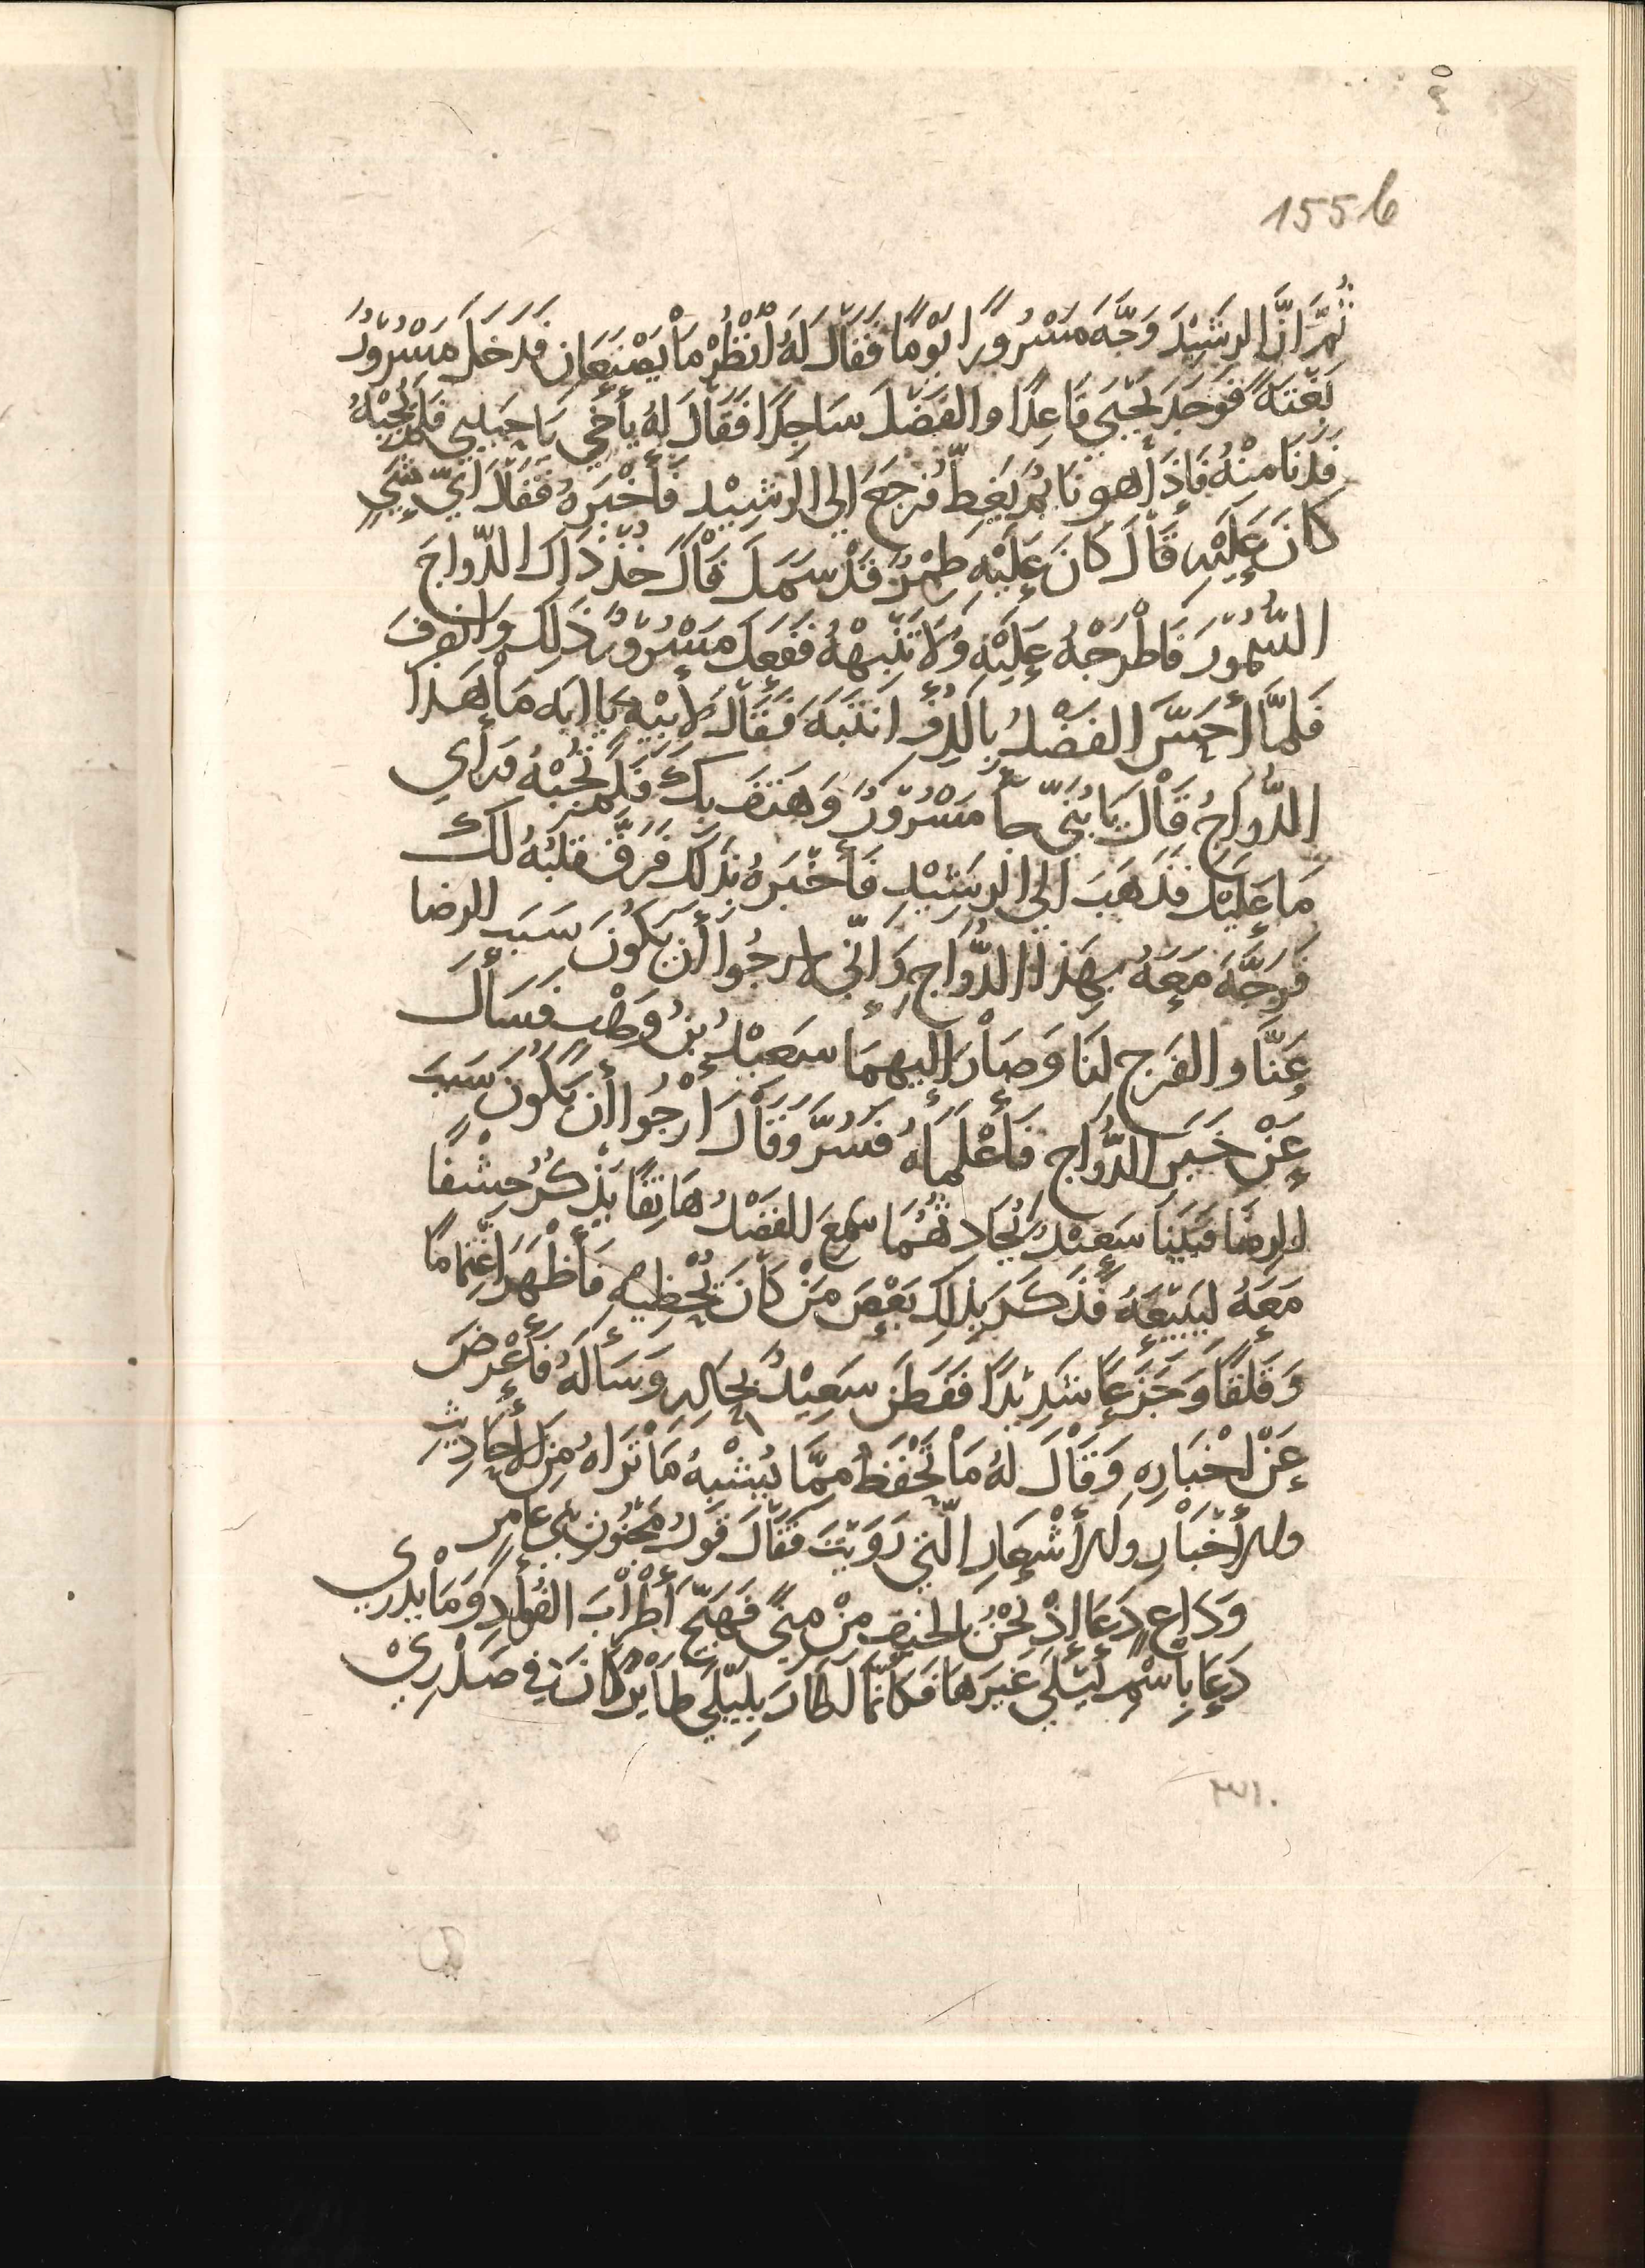 155b
ثُمَّ انَّ الرشِيْدَ وَجَّهَ مَسْرُورًا يَوْمًا فَقَالَ لَهُ انْظُرْ مَاْ يَصْنَعَانِ فدَخَلَ مَسْرُورُ
بَغْتَةً فَوَجَدَ يَحْيَي قَاعِدًا والفَضْلَ سَاجِدًا فَقَالَ لهُ يأخي يَا حَبيبي فلَمْ يُجِبْهُ
فدَنَا مِنْهُ فَاِذَا هو نَايِمٌ يَغِطُّ فرجعَ الي الرَشِيْدِ فأخْبَرهُ فَقَالَ ايّ شَيءٍ
كَانَ عَلَيْهِ قَالَ كَانَ عَلَيْهِ طِمْرٌ قدْ سَمَلَ قَالَ خُذْ ذَاكَ الدّواجَ
السَّمُّوْرَ فَاطْرَحْهُ عَلَيْهِ وَلَا تُنَبِّهْهُ فَفَعَلَ مَسْرُوْرٌ ذَلِكَ وَانصَرَفَ
فَلَمَّا أحَسَّ الفَضْلُ بِالدِفْءِ انتَبَهَ فَقَالَ لأَبِيْهِ يَا ابَه مَا هَذَا
الدُّوَاجُ قَالَ يَا بُنَيّ جَآءَ مَسْرُوْرٌ وَهَتَفَ بِكَ فَلَمْ تُجِبْهُ فرَأي
مَا عَلَيْكَ فَذَهَبَ الي الرَشِيْدِ فَأخْبَرهُ بذَلكَ فَرَقَّ قلبُهُ لكَ
فَوَجَّهَ مَعَهُ بِهَذَا الدُّوَاجِ وَاِنِّي لارجُوا أن يَكُونَ سَبَب الرضا
عَنَّا والفَرَج لنَا وَصَاْرَ اليهِمَا سَعيْدُ بنُ وَهْبٍ فسَأَلَ
عَنْ خَبَرِ الدُّوَاجِ فأعْلَمَاهُ فَسُرَّ وَقَالَ ارْجُوا أن يَكُونَ سَبَبَ
الرضَا فبَيْنَا سَعِيْدٌ يُحَادِثُهُمَا سَمِعَ الفَضْلُ هَاتِفًا يَذْكرُ خِشْفًا
مَعَهُ ليَبِيْعَهُ فَذَكَرَ بِذَاكَ بَعْضَ مَنْ كَانَ يُحْظِيْهِ فَأظْهَرَ اغْتِمَامًا
وَقَلَقًا وَجَزَعًا شَدِيْدًا فَفَطِنَ سَعِيْدٌ بِحَالِهِ وَسَأَلَهُ فأعْرَضَ
عَنْ اخْبَارِهِ وَقَالَ لهُ مَا تَحْفَظُ مِمَّا يُشْبِهُ مَا تَرَاهُ مِنَ الأحَادِيثِ
والأخْبَاْرِ والأَشْعَارِ الّتي رَوَيْتَ فقَالَ قَوْلُ مَجْنُونِ بَنِي عَامِر
وَدَاعٍ دَعَا اِذْ نَحْنُ بالخَيفِ مِنْ مِنًي فَهَيَّجَ أَطْرَابَ الفُؤادِ وَمَا يَدْرِي
دَعَا بِاسْمِ لَيْلَي غَيرَهَا فَكَأنَّمَا أطَارَ بِلَيْلَي طَايْرًا كَانَ في صَدْرِيْ
٣١٠